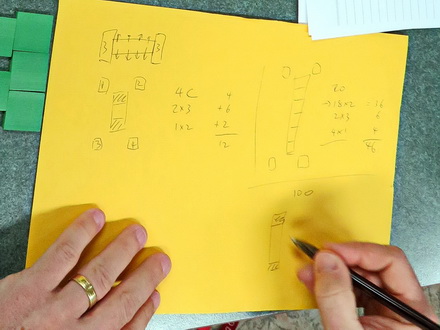 3 3
1 2
3 4
4C 4
2x3 +6
1x2 +2
12
80
→ 18x2 36
2x3 6
4x1 4
46
100